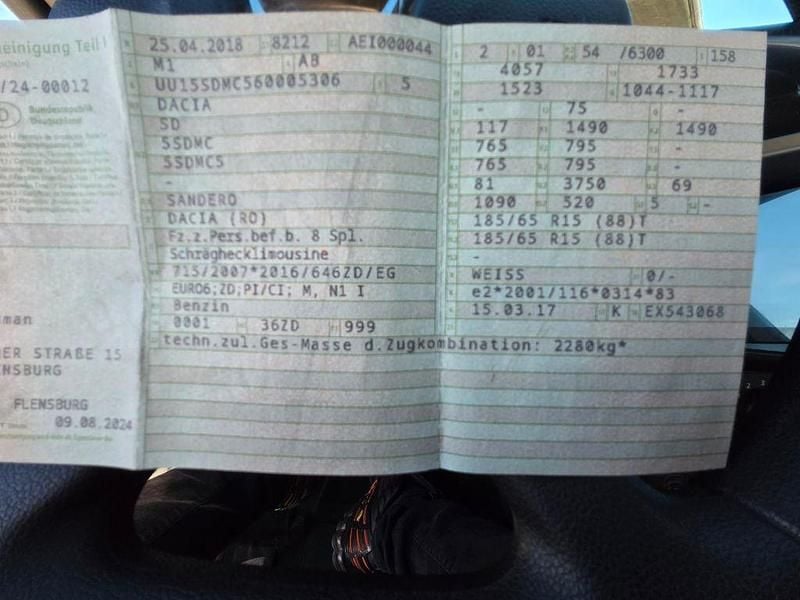 einigung Teil I
/24-00012
Bundesrepublik
Deutschland
man
ER STRAßE 15
NSBURG
FLENSBURG
09.08.2024
25.04.2018 8212 AEI000044
M1 AB
UU15SDMC560005306 5
DACIA
SD
5SDMC
5SDMC5
-
SANDERO
DACIA (RO)
Fz.z.Pers.bef.b. 8 Spl.
Schräghecklimousine
715/2007*2016/646ZD/EG
EURO6;ZD;PI/CI; M, N1 I
Benzin
0001 36ZD 999
techn.zul.Ges-Masse d.Zugkombination: 2280kg*
2 01 54 /6300 158
4057 1733
1523 1044-1117
- 75 -
117 1490 1490
765 795 -
765 795 -
81 3750 69
1090 520 5 -
185/65 R15 (88)T
185/65 R15 (88)T
-
WEISS 0/-
e2*2001/116*0314*83
15.03.17 K EX543068